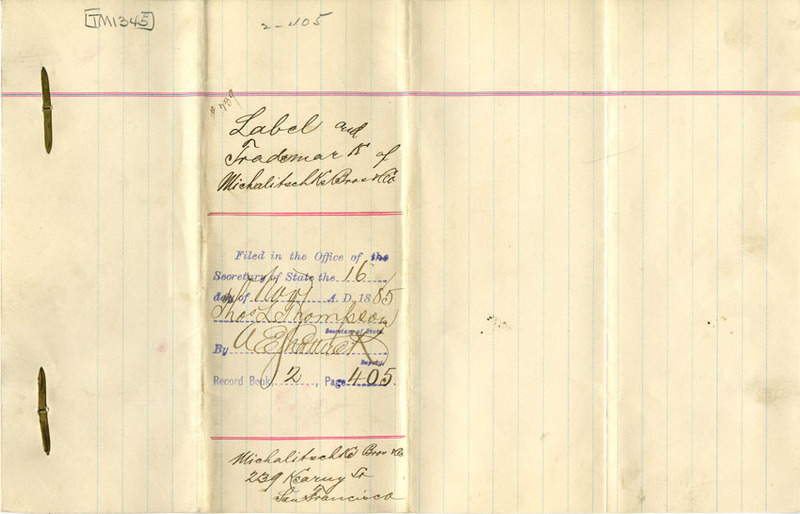 TM1345
2-405
# 739
Label and
Trademark of
Michalitschke Bros & Co
Filed in the Office of the
Secretary of State the 16
day of A.D. 1885
Thos L Thompson
Secretary of State.
By
Deputy.
Record Book 2, Page 405.
Michalitschke Bros & Co
239 Kearny St
San Francisco